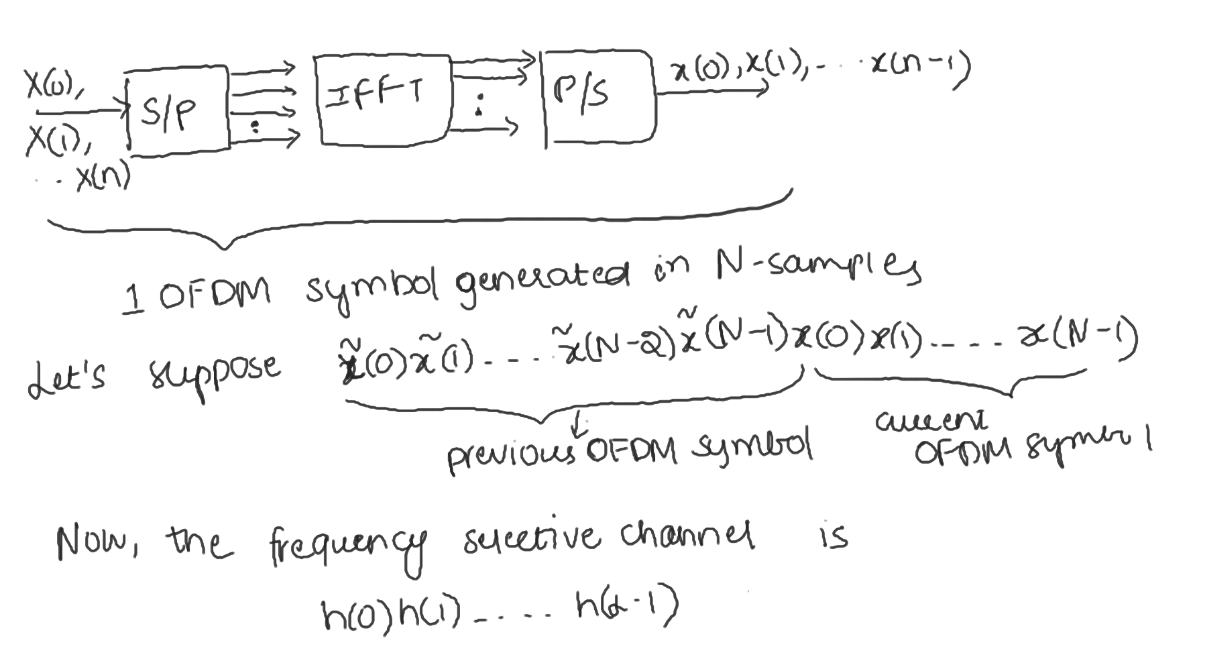 X(0),
X(1),
.. X(n)
S/P
IFFT
P/S
x(0), x(1), - ... x(n-1)
1 OFDM symbol generated in N-samples
Let's suppose x̃(0) x̃(1) - ... x̃(N-2) x̃(N-1) x(0) x(1) ..... x(N-1)
previous OFDM symbol
current
OFDM symbol
Now, the frequency selective channel is
h(0) h(1) ..... h(L-1)